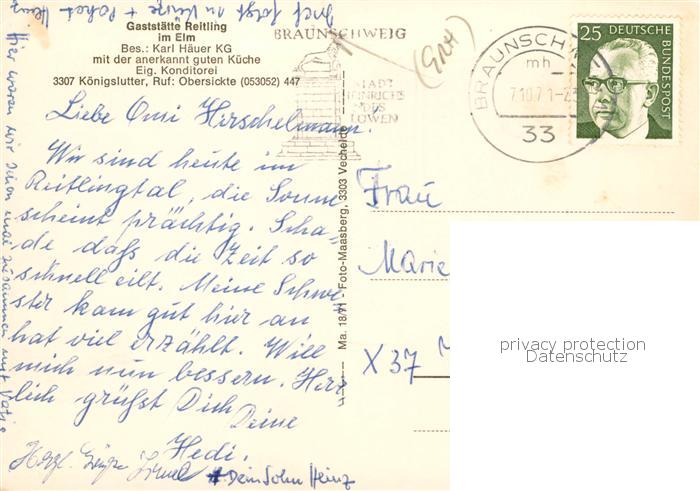 Brief folgt m. Kürze + Paket Heinz
Hier waren wir schon mal zusammen mit Vati
Gaststätte Reitling
im Elm
Bes.: Karl Häuer KG
mit der anerkannt guten Küche
Eig. Konditorei
3307 Königslutter, Ruf: Obersickte (053052) 447
BRAUNSCHWEIG
STADT
HEINRICHS
DES
LÖWEN
BRAUNSCHW
mh
7.10.71-2
33
25 DEUTSCHE
BUNDESPOST
Liebe Omi Hirschelmann!
Wir sind heute im
Reitlingtal, die Sonne
scheint prächtig. Scha-
de daß die Zeit so
schnell eilt. Meine Schwe-
ster kam gut hier an
hat viel erzählt. Will
mich nun bessern. Herz-
lich grüßt Dich
Deine
Hedi.
Herzl. Grüße
Dein Sohn Heinz
Ma. 18/71 - Foto-Maasberg, 3303 Vechelde
Frau
Marie
X 37
privacy protection
Datenschutz